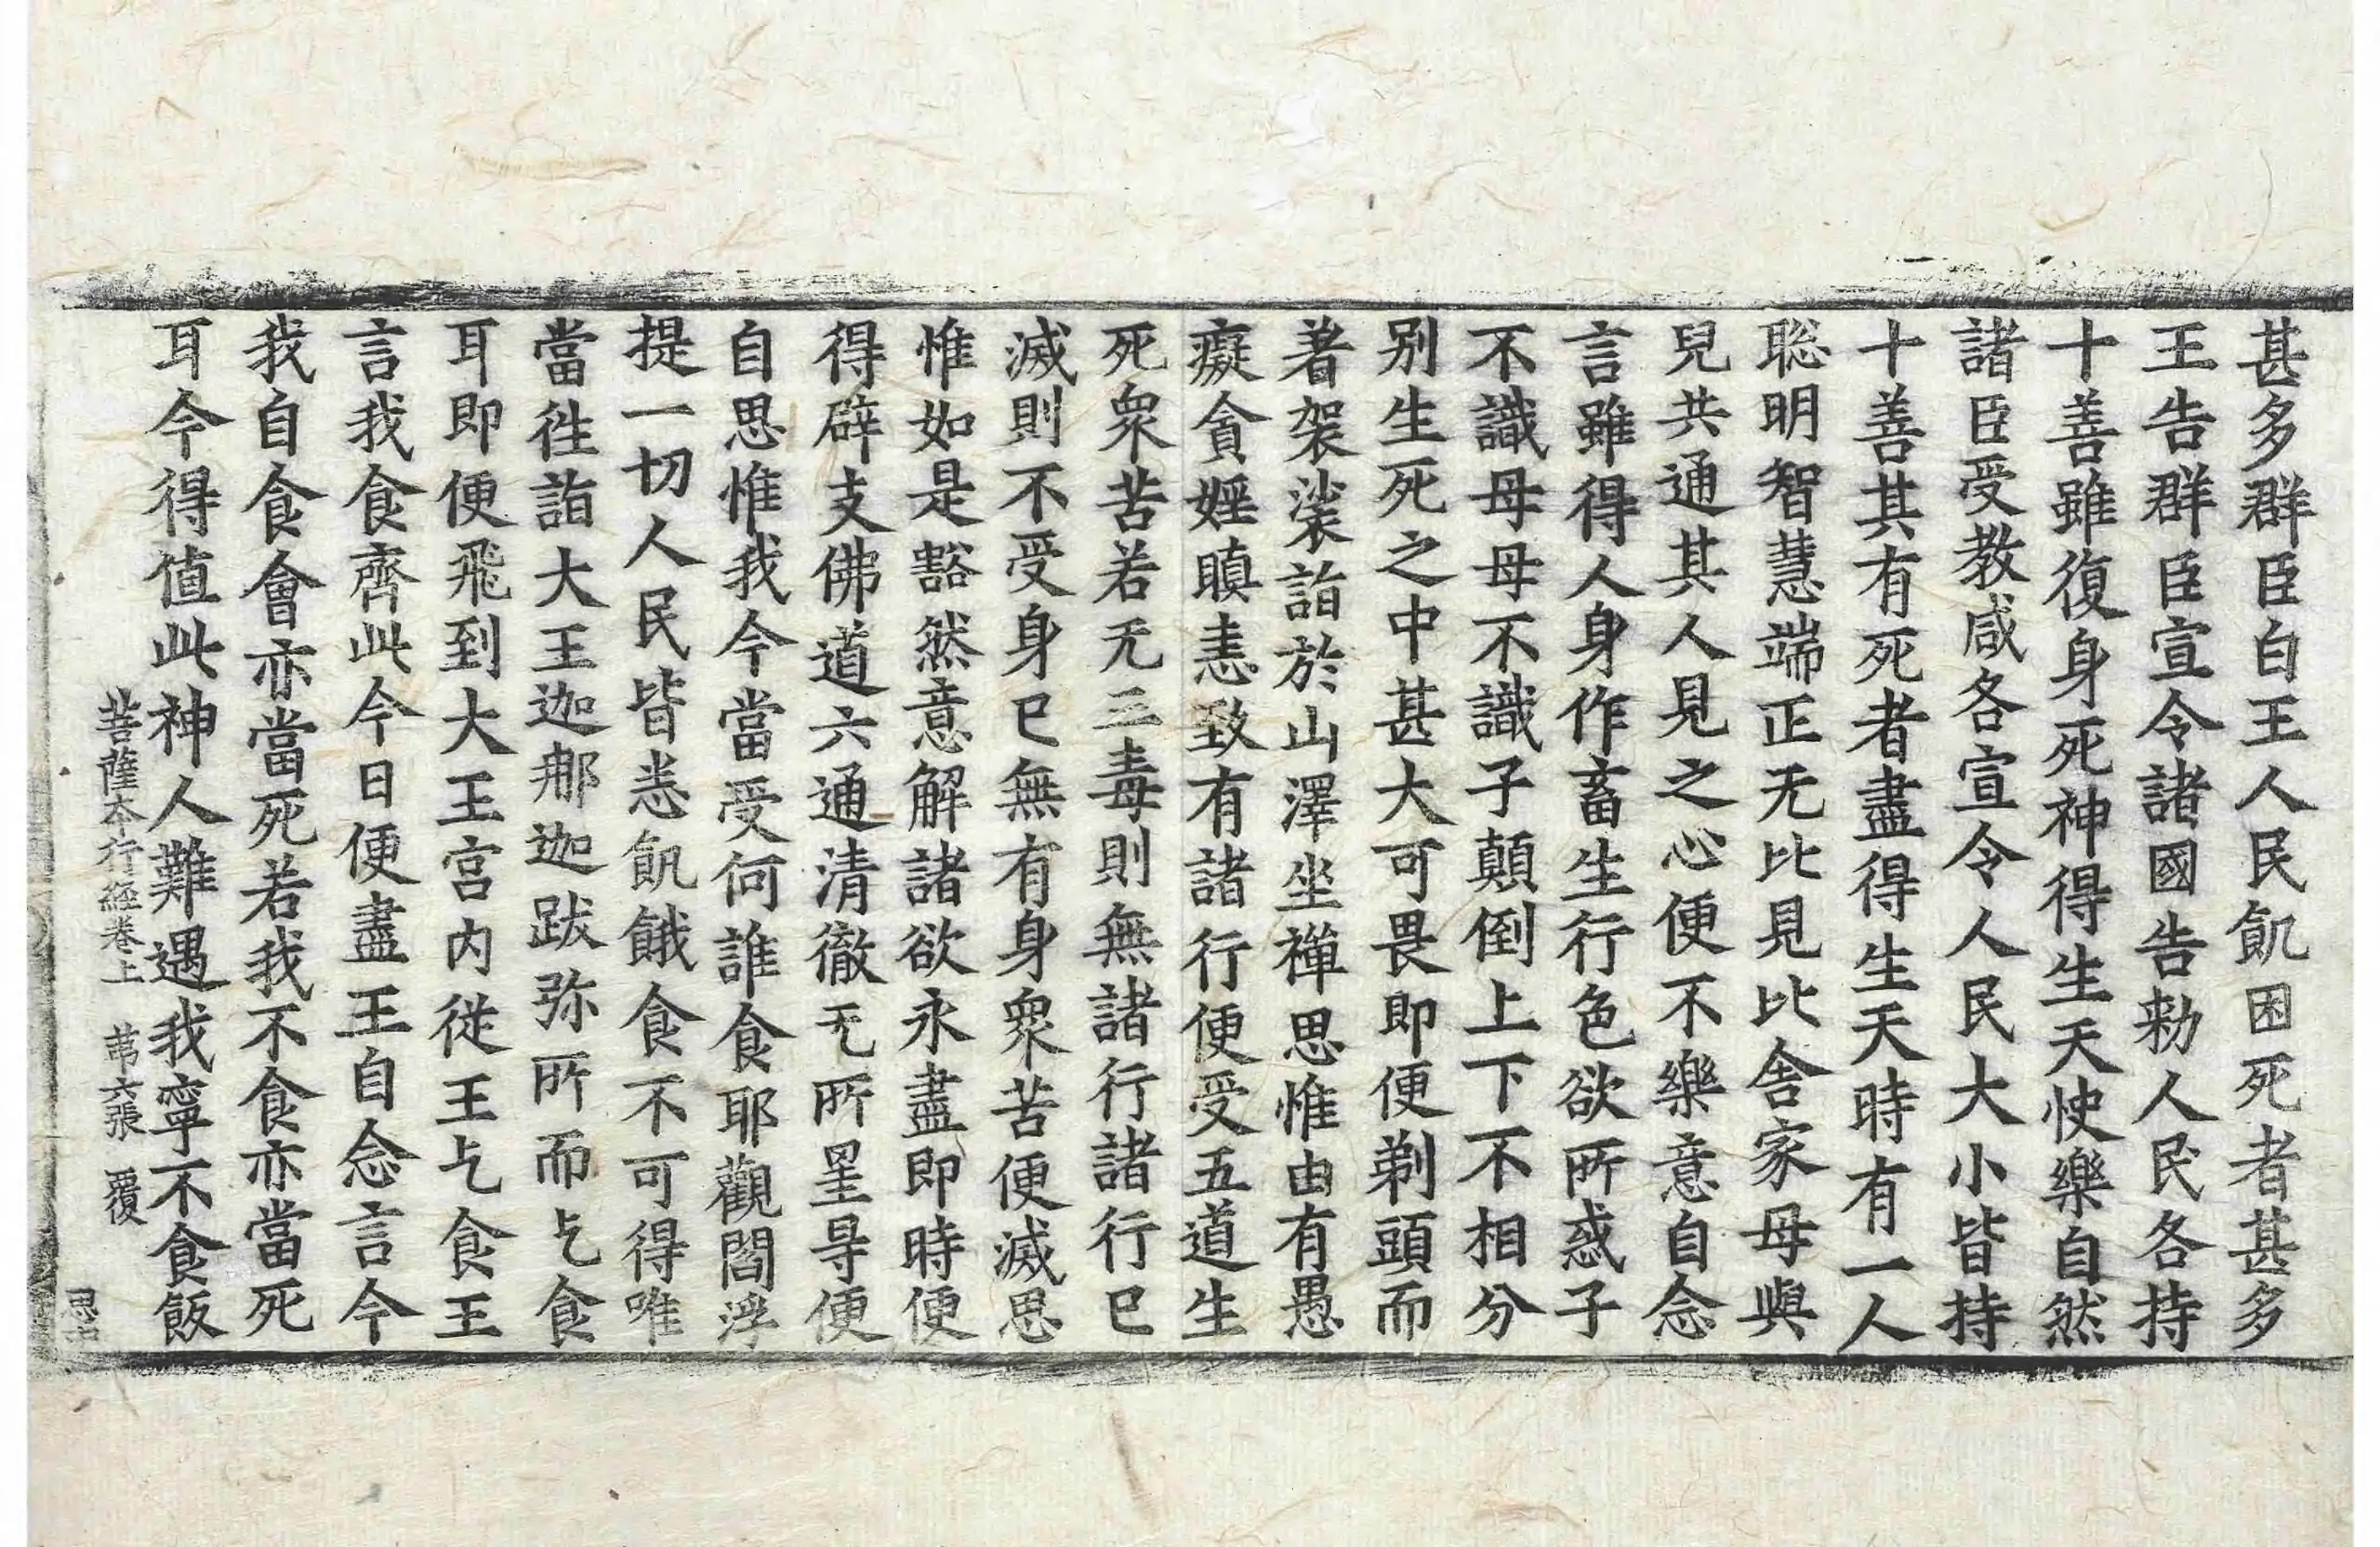 甚多群臣白王人民飢困死者甚多
王告群臣宣令諸國告勑人民各持
十善雖復身死神得生天快樂自然
諸臣受教咸各宣令人民大小皆持
十善其有死者盡得生天時有一人
聡明智慧端正无比見比舍家母與
兒共通其人見之心便不樂意自念
言雖得人身作畜生行色欲所惑子
不識母母不識子顛倒上下不相分
别生死之中甚大可畏即便剃頭而
著袈裟詣於山澤坐禪思惟由有愚
癡貪婬瞋恚致有諸行便受五道生
死衆苦若无三毒則無諸行諸行已
滅則不受身已無有身衆苦便滅思
惟如是豁然意解諸欲永盡即時便
得辟支佛道六通清徹无所罣㝵便
自思惟我今當受何誰食耶觀閻浮
提一切人民皆悉飢餓食不可得唯
當徃詣大王迦𨙻迦跋弥所而乞食
耳即便飛到大王宫内従王乞食王
言我食齊此今日便盡王自念言今
我自食會亦當死若我不食亦當死
耳今得值此神人難遇我寧不食飯
菩薩本行經卷上 苐六張 覆